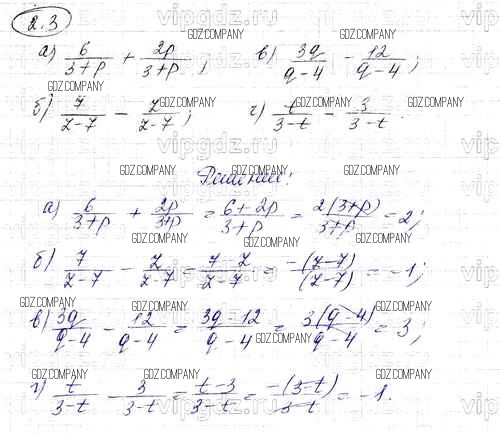 2.3
а) 6/(3+p) + 2p/(3+p); в) 3q/(q-4) - 12/(q-4);
б) 7/(z-7) - z/(z-7); г) t/(3-t) - 3/(3-t).
Решение:
а) 6/(3+p) + 2p/(3+p) = (6+2p)/(3+p) = 2(3+p)/(3+p) = 2;
б) 7/(z-7) - z/(z-7) = (7-z)/(z-7) = -(z-7)/(z-7) = -1;
в) 3q/(q-4) - 12/(q-4) = (3q-12)/(q-4) = 3(q-4)/(q-4) = 3;
г) t/(3-t) - 3/(3-t) = (t-3)/(3-t) = -(3-t)/(3-t) = -1.
vipgdz.ru
GDZ.COMPANY